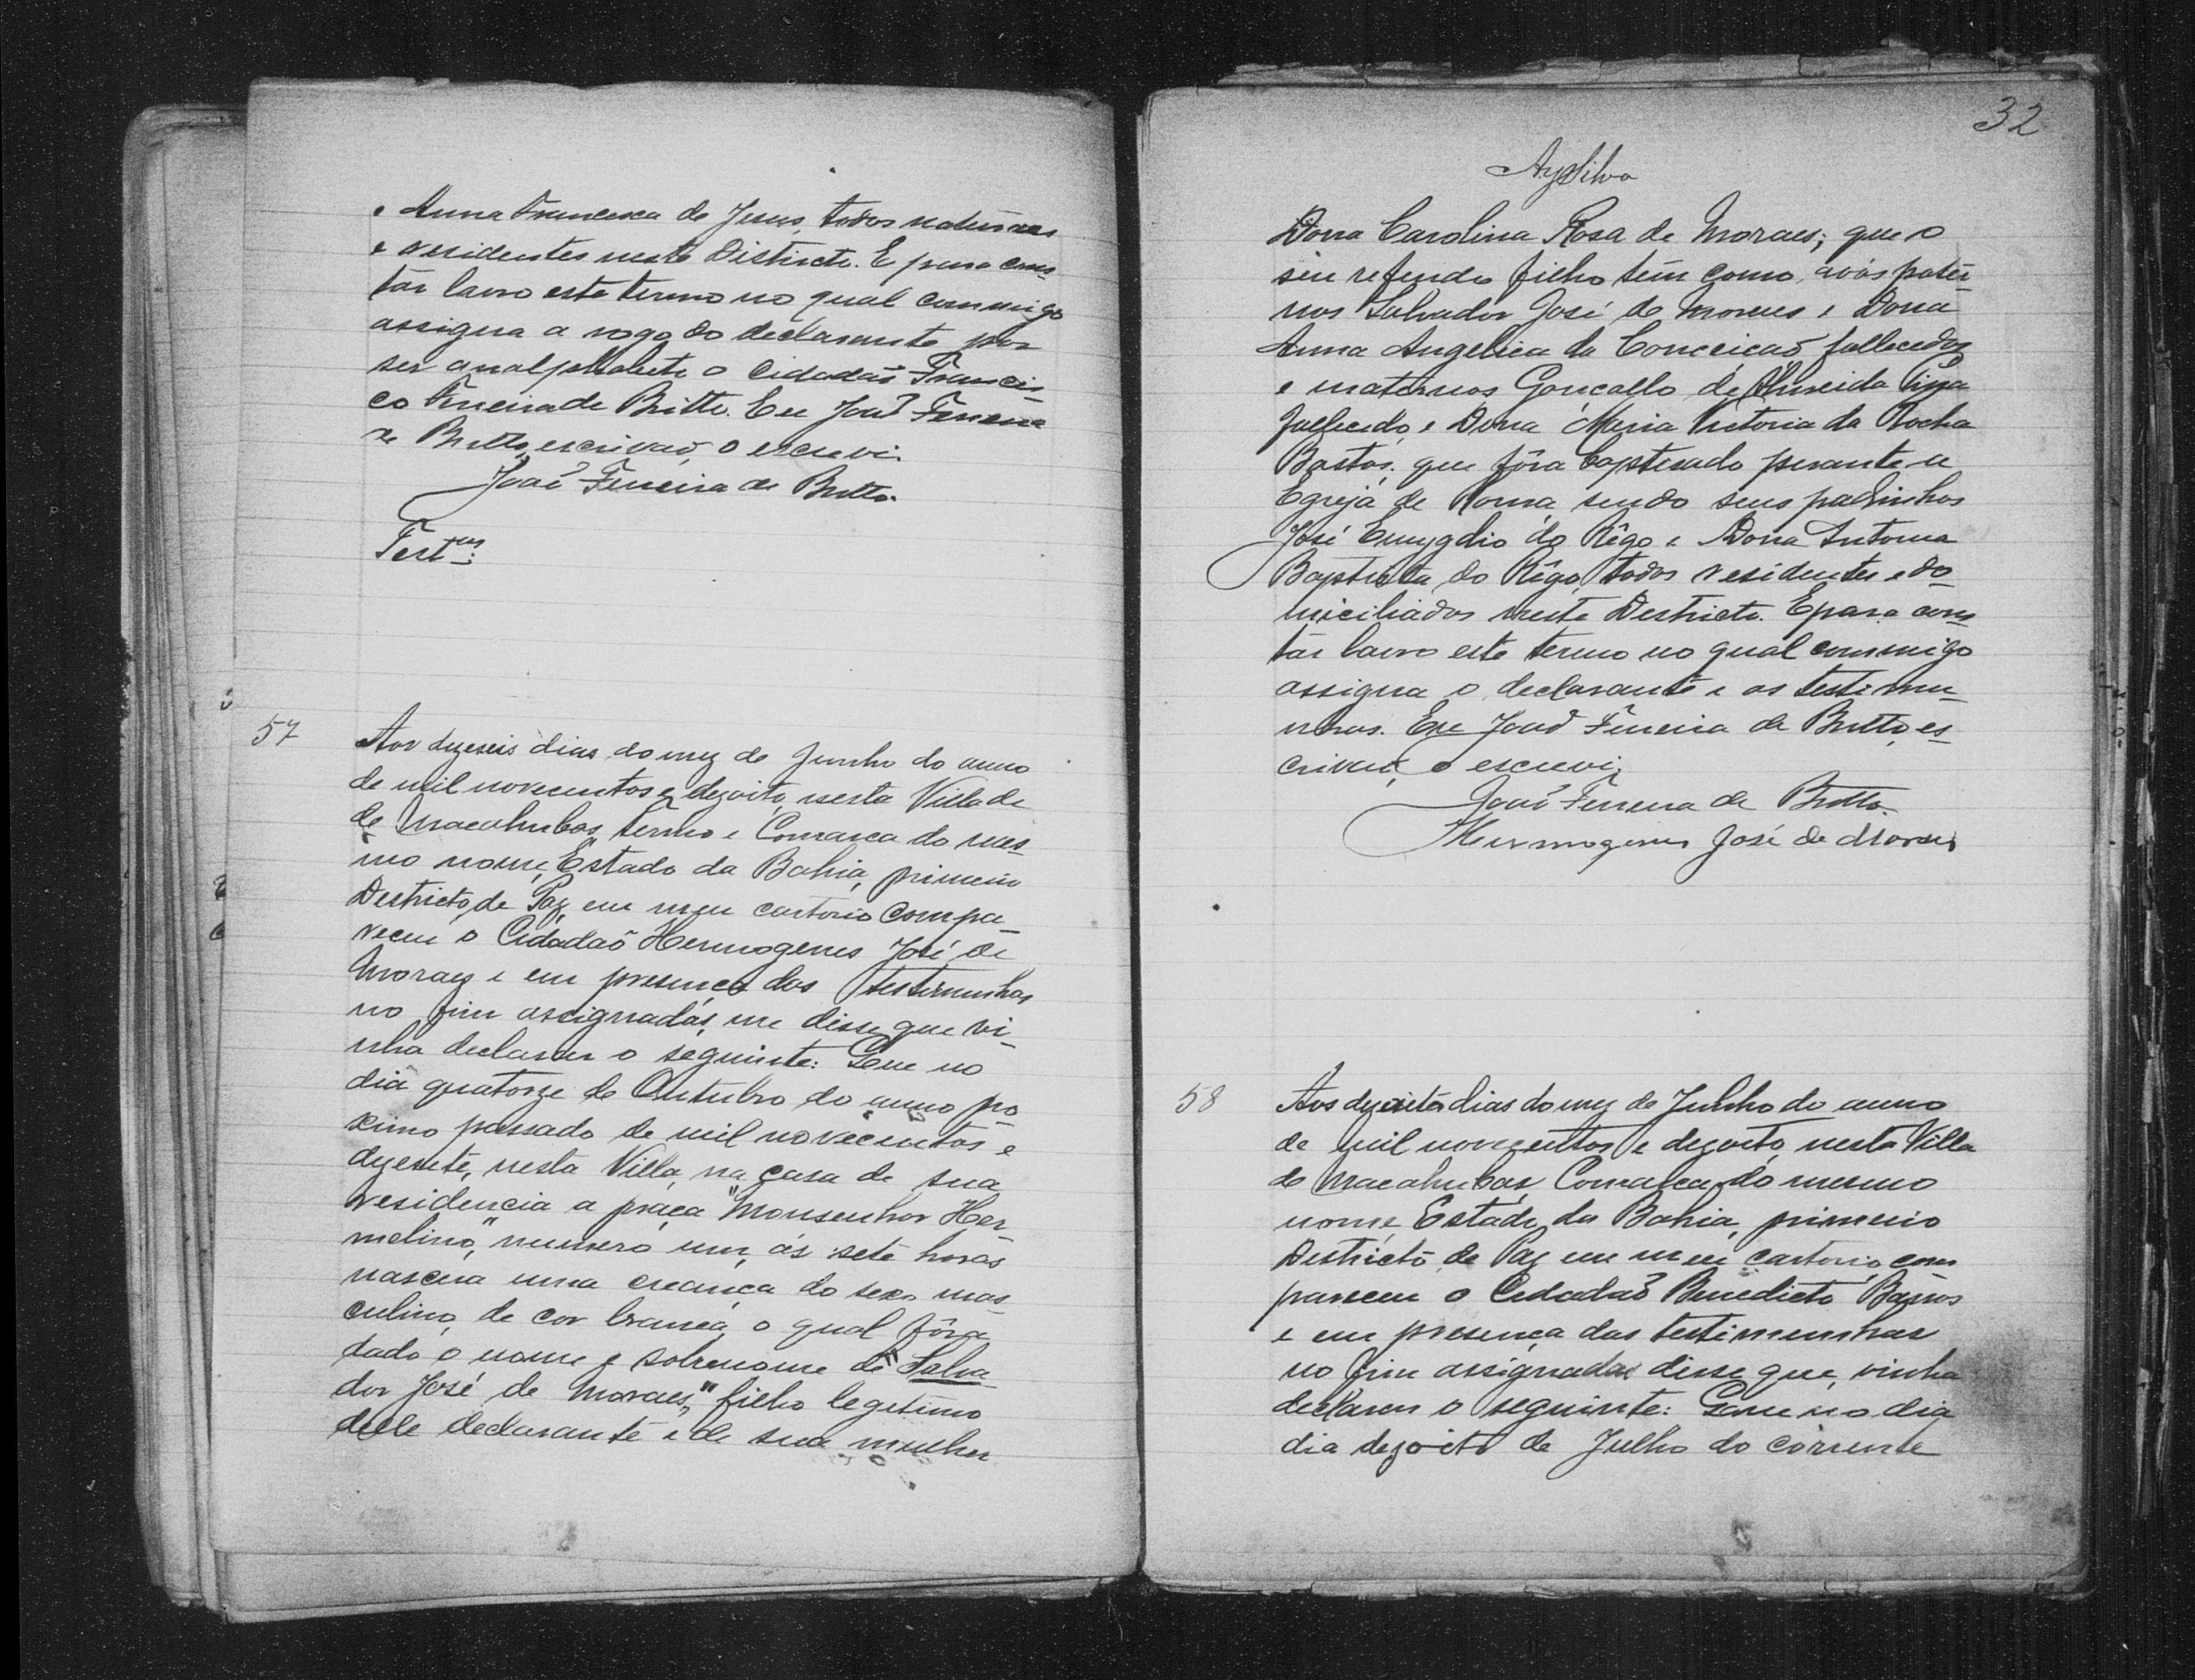 e Anna Francisca de Jesus, todos naturaes
e residentes neste Districto. E para cons
tar lavro este termo no qual commigo
assigna a rogo do declarante por
ser analphabeto o Cidadão Francis-
co Ferreira de Britto. Eu João Ferreira
de Britto, escrivão, o escrevi.
João Ferreira de Britto.
Test.as:
57
Aos dezeseis dias do mez de Junho do anno
de mil novecentos e dezoito, nesta Villa de
de Macahubas, termo e Comarca do mes-
mo nome, Estado da Bahia, primeiro
Destricto de Paz, em meu cartorio compa-
receu o Cidadão Hermogenes José de
Moraes e em presença das testimunhas
no fim assignadas, me disse que vi-
nha declarar o seguinte: Que no
dia quatorze de Outubro do anno pro
ximo passado de mil novecentos e
dezesete, nesta Villa, na casa de sua
residencia a praça "Monsenhor Her-
melino", numero um, ás sete horas
nascera uma creança do sexo mas-
culino, de cor branca, o qual fôra
dado o nome e sobrenome de "Salva
dor José de Moraes," filho legitimo
delle declarante e de sua mulher
32
Dona Carolina Rosa de Moraes; que o
seu referido filho tem como avós pater-
nos Salvador José de Moraes e Dona
Anna Angelica da Conceicão, fallecidos
e maternos Goncallo de Almeida
fallecido, e Dona Maria Victoria da Rocha
Bastos. que fôra baptisado perante a
Egreja de Roma, sendo seus padrinhos
José Emygdio do Rêgo e Dona Antonia
Baptista do Rêgo, todos residentes e do-
miciliados neste Destricto. E para cons
tar lavro este termo no qual commigo
assigna o declarante e as testimu-
nhas. Eu João Ferreira de Britto, es-
crivão, o escrevi.
João Ferreira de Britto.
Hermogenes José de Moraes
58
Aos dias do mez de Julho do anno
de mil novecentos e dezoito, nesta Villa
de Macahubas, Comarca do mesmo
nome, Estado da Bahia, primeiro
Destricto de Paz em meu cartorio, com
pareceu o Cidadão Benedicto Barros
e em presença das testimunhas
no fim assignadas disse que vinha
declarar o seguinte: Que no dia
dia dezoito de Julho do corrente